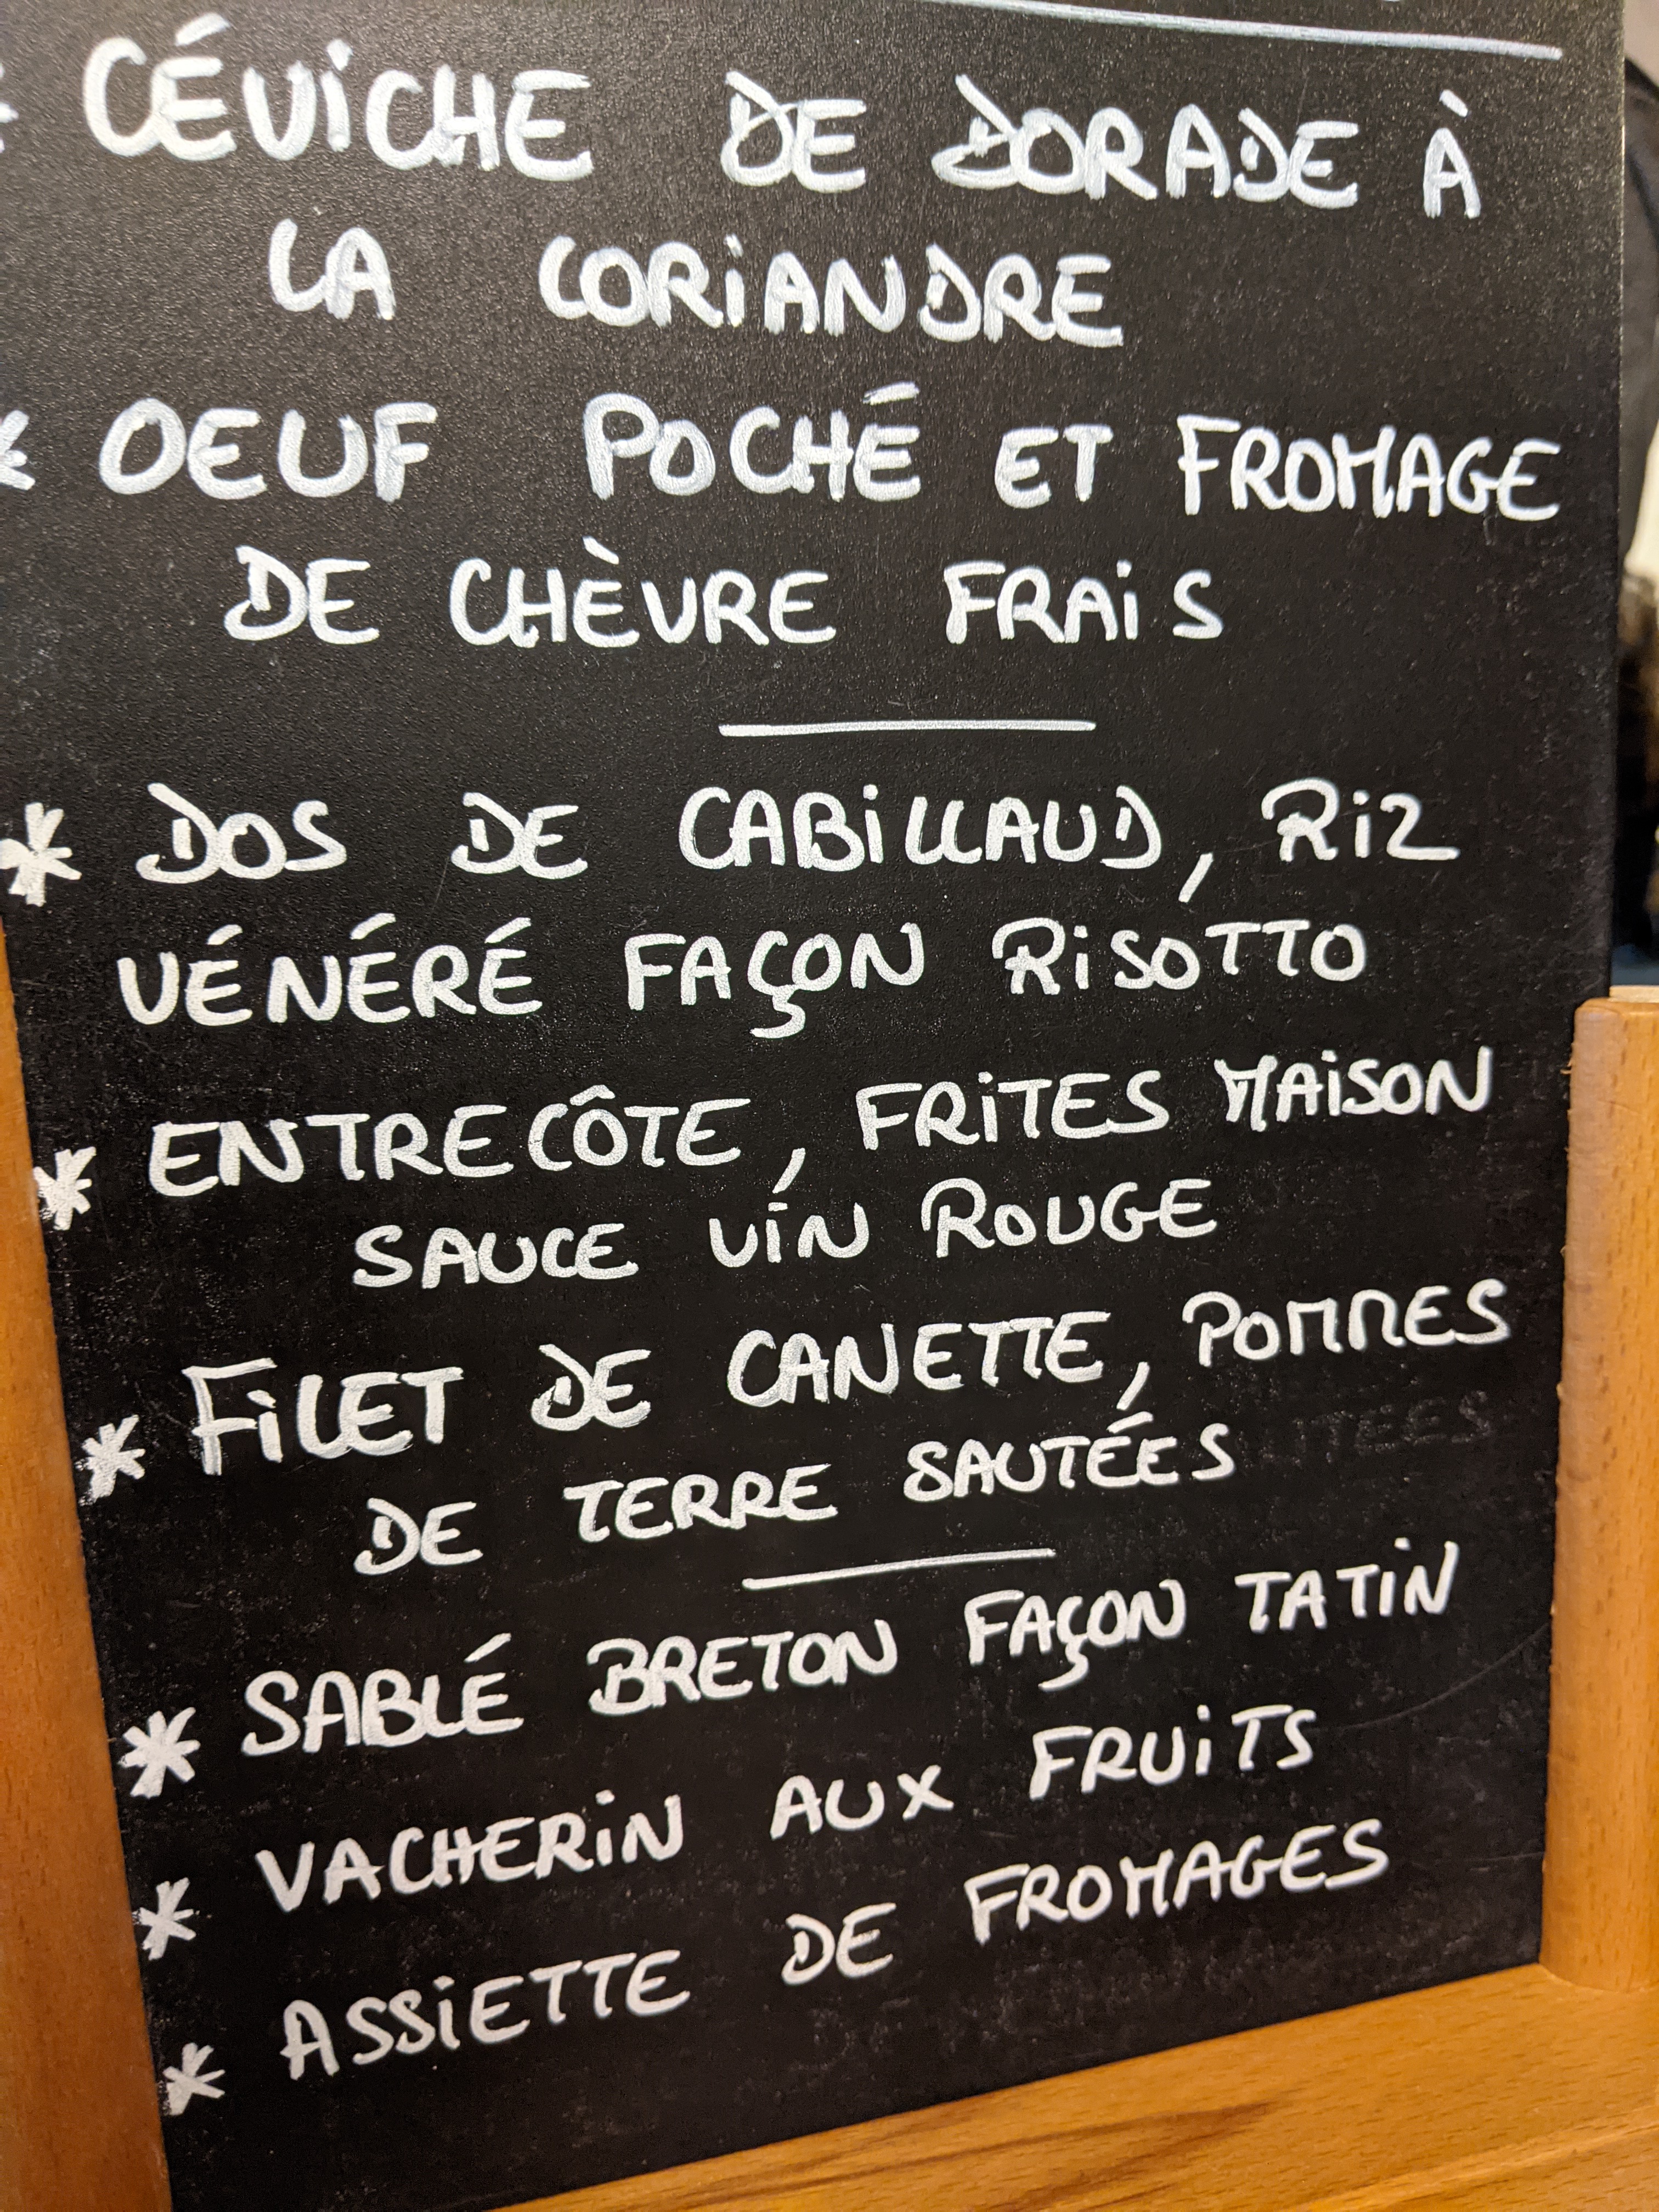 * CÉVICHE DE DORADE À
LA CORIANDRE
* OEUF POCHÉ ET FROMAGE
DE CHÈVRE FRAIS
* DOS DE CABILLAUD, RIZ
VÉNÉRÉ FAÇON RISOTTO
* ENTRECÔTE, FRITES MAISON
SAUCE VIN ROUGE
* FILET DE CANETTE, POMMES
DE TERRE SAUTÉES
* SABLÉ BRETON FAÇON TATIN
* VACHERIN AUX FRUITS
* ASSIETTE DE FROMAGES